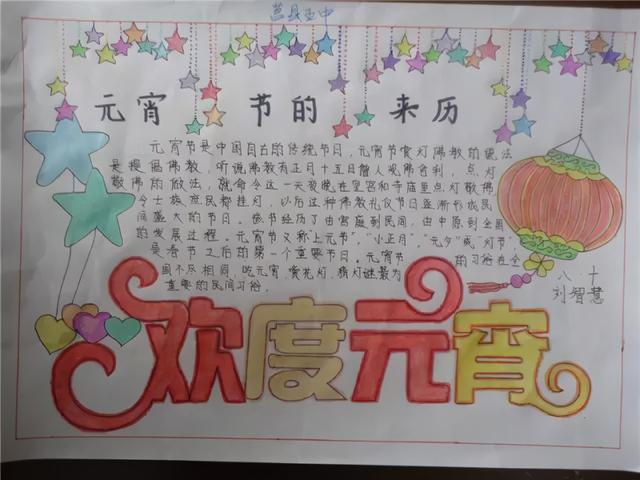 莒县五中
元宵 节的 来历
元宵节是中国自古的传统节日,元宵节赏灯佛教的说法
是提倡佛教,听说佛教有正月十五日僧人观佛舍利,点灯
敬佛的做法,就命令这一天夜晚在皇宫和寺庙里点灯敬佛
令士族庶民都挂灯,以后这种佛教礼仪节日逐渐形成民
间盛大的节日。该节经历了由宫庭到民间,由中原到全国
的发展过程。元宵节又称"上元节","小正月""元夕"或"灯节",
是春节之后的第一个重要节日。元宵节 的习俗在全
国不尽相同,吃元宵、赏花灯、猜灯谜最为
重要的民间习俗。
八.十
刘智慧
欢度元宵